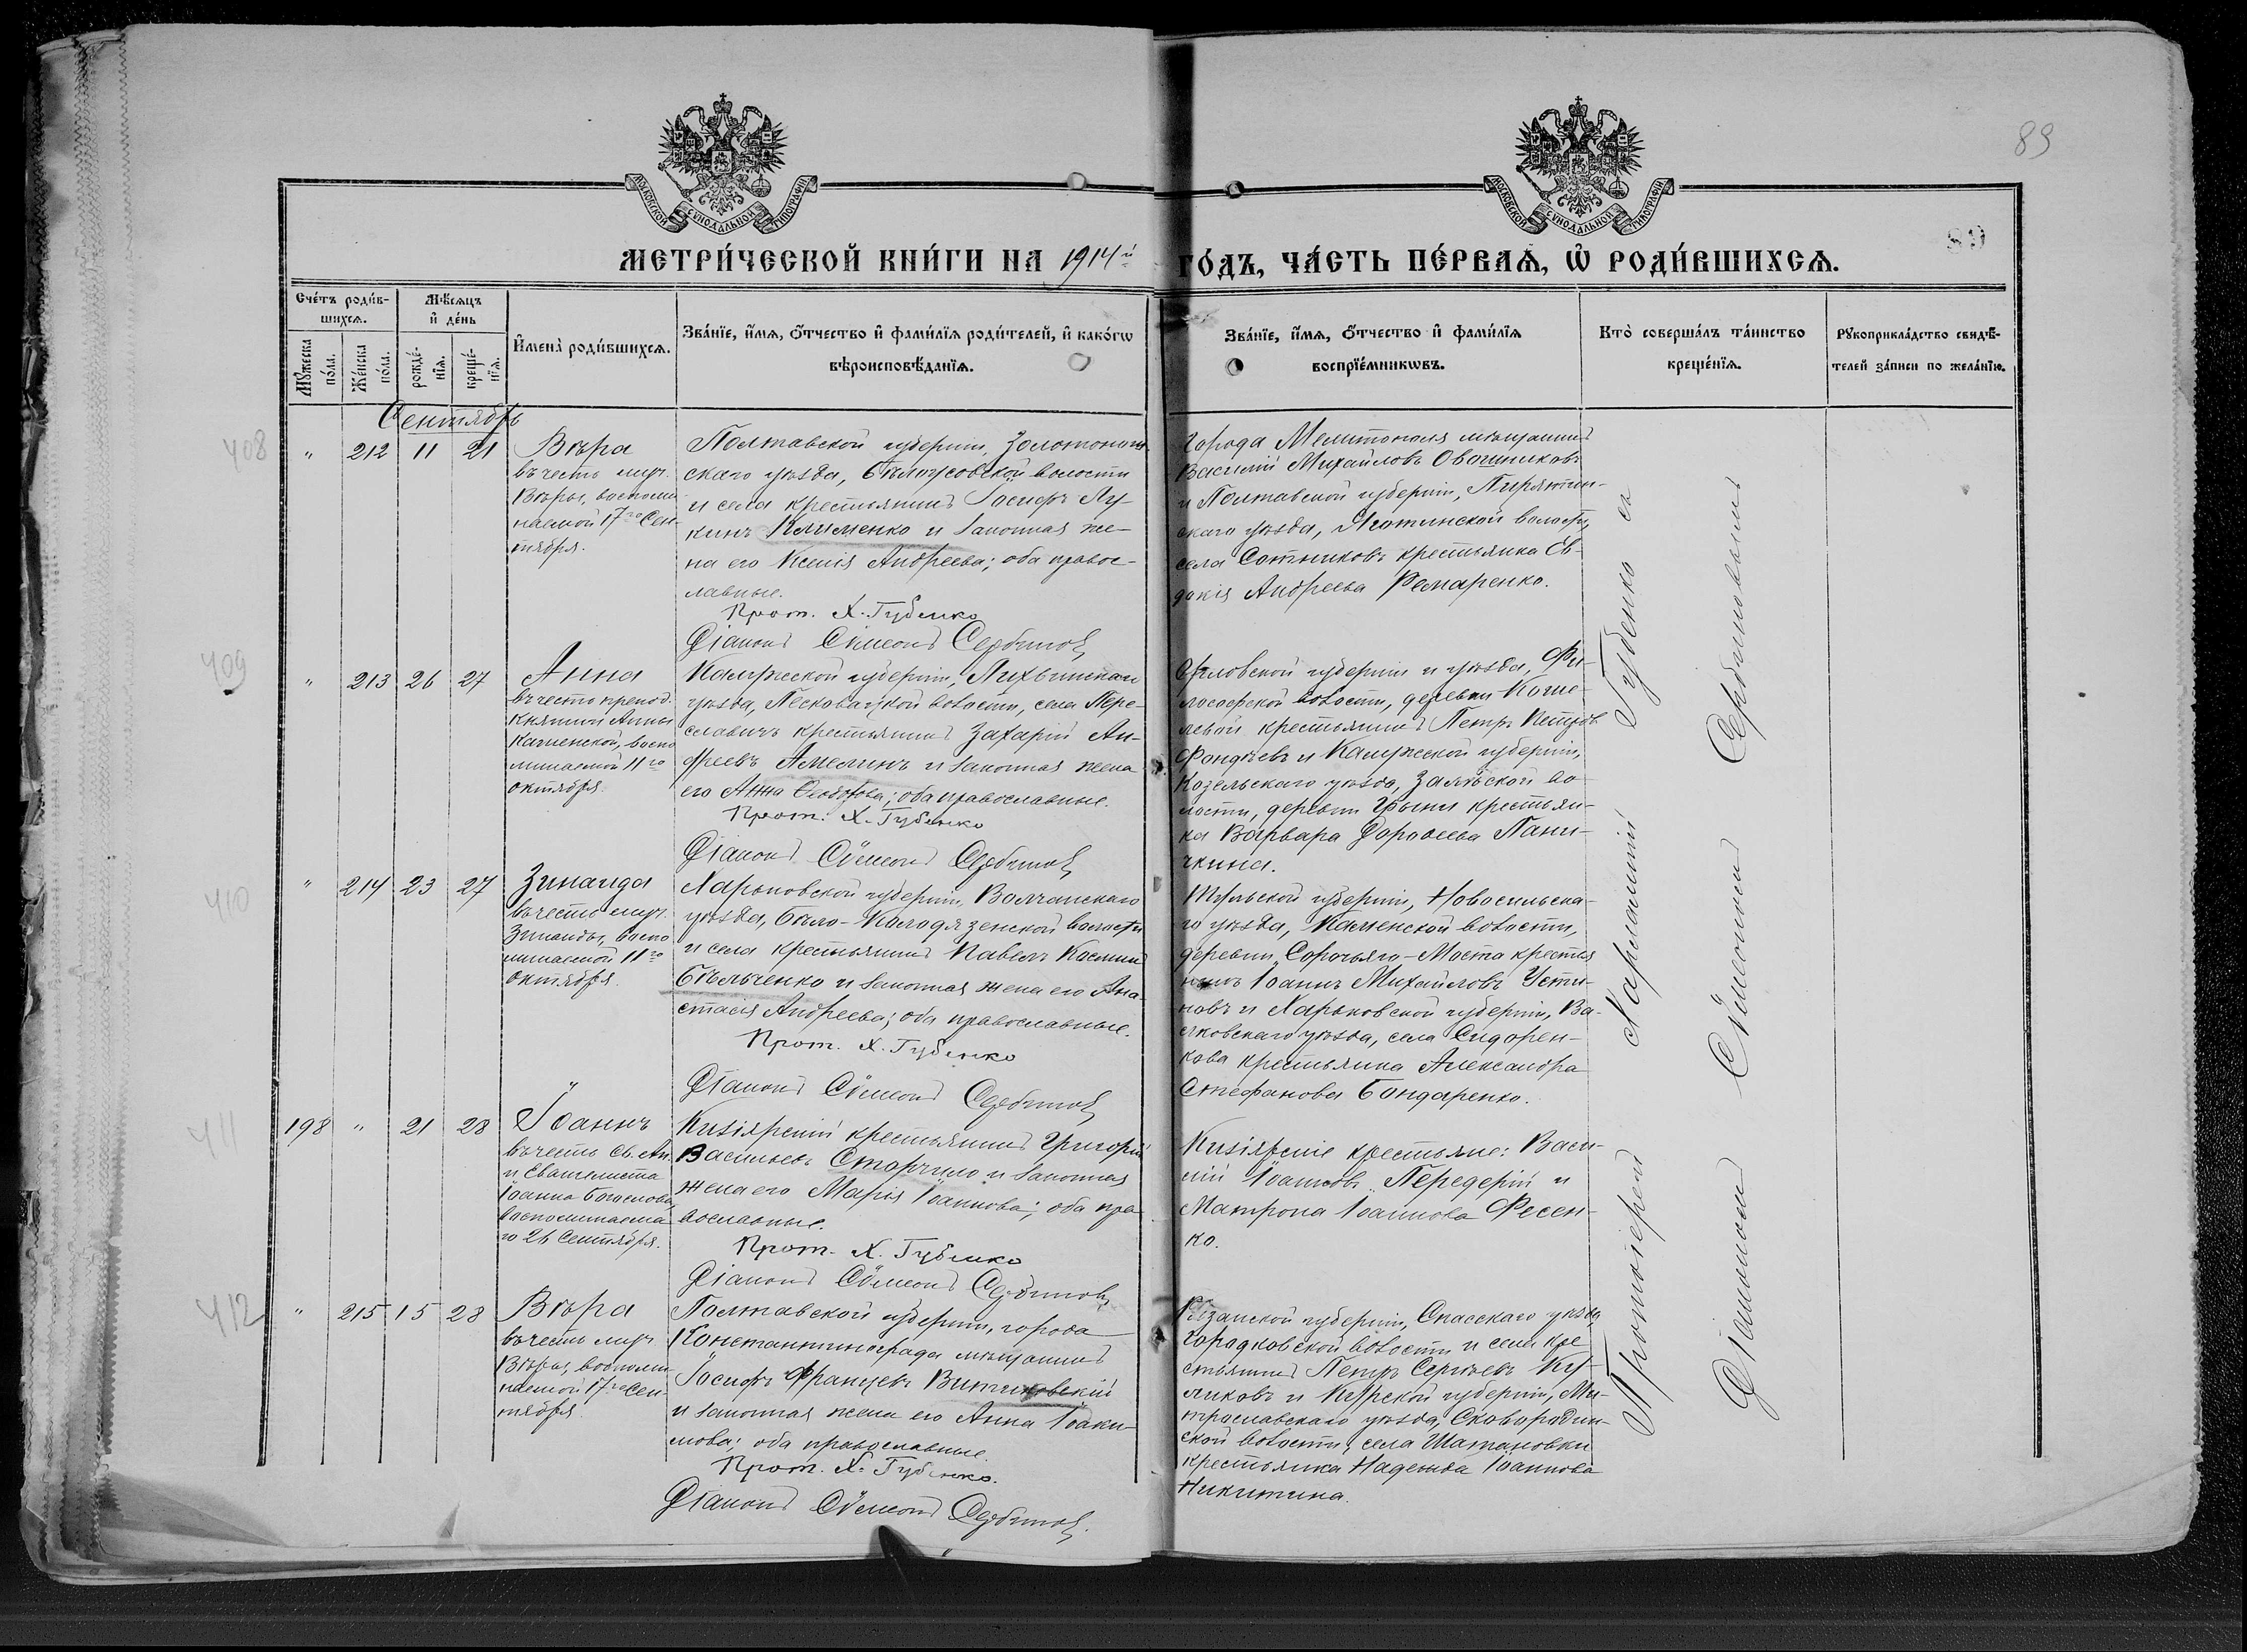 89
МОСКОВСКОЙ СѴНОДАЛЬНОЙ ТИПОГРАФІИ
МОСКОВСКОЙ СѴНОДАЛЬНОЙ ТИПОГРАФІИ
МЕТРИ́ЧЕСКОЙ КНИ́ГИ НА 1914й ГО́ДЪ, ЧА́СТЬ ПЕ́РВАѦ, Ѡ҆ РОДИ́ВШИХСѦ.
Сче́тъ роди́в-
шихсѧ.
Мѣ́сѧцъ
и҆ де́нь
Мꙋ́жеска
по́ла.
Же́нска
по́ла.
рожде́-
нїѧ.
креще́-
нїѧ.
И҆мена̀ роди́вшихсѧ.
Зва́нїе, и҆́мѧ, ѻ҆́тчество и҆ фами́лїѧ роди́телей, и҆ како́гѡ
вѣроисповѣ́данїѧ.
Зва́нїе, и҆́мѧ, ѻ҆́тчество и҆ фами́лїѧ
воспрїе́мникѡвъ.
Кто̀ соверша́лъ та́инство
креще́нїѧ.
Рꙋкоприкла́дство свидѣ́-
телей за́писи по жела́нїю.
Сентябрь
408
" 212 11 21
Вѣра
въ честь муч.
Вѣры, воспоми
наемой 17го Сен-
тября.
Полтавской губерніи, Золотонош-
скаго уѣзда, Бѣлоусовской волости
и села крестьянинъ Іосифъ Лу-
кинъ Клименко и законная же-
на его Ксенія Андреева; оба правос-
лавные.
Прот. Х. Губенко
Діаконъ Сѵмеонъ Сербиновъ
Города Мелитополя мѣщанинъ
Василій Михайловъ Овчинниковъ
и Полтавской губерніи, Пирятин-
скаго уѣзда, Яготинской волости,
села Сотниковъ крестьянка Ев-
докія Андреева Ремаренко.
409
" 213 26 27
Анна
въ честь препод.
Княгини Анны
Кашинской, воспо
минаемой 11го
октября.
Калужской губерніи, Лихвинскаго
уѣзда, Песковатской волости, села Пере-
славичъ крестьянинъ Захарій Ан-
дреевъ Амелинъ и законная жена
его Анна Феодорова; оба православные.
Прот. Х. Губенко
Діаконъ Сѵмеонъ Сербиновъ
Орловской губерніи и уѣзда, Фи-
лософской волости, деревни Коше-
левой крестьянинъ Петръ Петровъ
Фандѣевъ и Калужской губерніи,
Козельскаго уѣзда, во-
лости, деревни крестьян-
ка Варвара Дорофеева Пани-
чкина.
410
" 214 23 27
Зинаида
въ честь муч.
Зинаиды, воспо
минаемой 11го
октября.
Харьковской губерніи, Волчанскаго
уѣзда, Бѣло-Колодязенской волости
и села крестьянинъ Павелъ Космин
Бѣльченко и законная жена его Ана-
стасія Андреева; оба православные.
Прот. Х. Губенко
Діаконъ Сѵмеонъ Сербиновъ
Тульской губерніи, Новосильска-
го уѣзда, Каменской волости,
деревни Сорочьяго-Моста крестья
нинъ Іоаннъ Михайловъ Усти-
новъ и Харьковской губерніи, Ва-
лковскаго уѣзда, села Сидорен-
кова крестьянка Александра
Стефанова Бондаренко.
411
198 " 21 28
Іоаннъ
въ честь Св. Ап.
и Евангелиста
Іоанна Богослова,
воспоминаема
го 26 Сентября.
Кизіярскій крестьянинъ Григорій
Васильевъ Сторчило и законная
жена его Марія Іоаннова; оба пра
вославные.
Прот. Х. Губенко
Діаконъ Сѵмеонъ Сербиновъ
Кизіярскіе крестьяне: Васи-
лій Іоанновъ Передерій и
Матрона Іоаннова Фесен-
ко.
412
" 215 15 28
Вѣра
въ честь муч.
Вѣры, воспоми
наемой 17го Сен-
тября.
Полтавской губерніи, города
Константинограда мѣщанинъ
Іосифъ Францевъ Витковскій
и законная жена его Анна Іоаки-
мова; оба православные.
Прот. Х. Губенко.
Діаконъ Сѵмеонъ Сербиновъ.
Рязанской губерніи, Спасскаго уѣзда
Городковской волости и села кре
стьянинъ Петръ Сергѣевъ Ку-
ликовъ и Курской губерніи, Ми-
трославскаго уѣзда, Сковородин-
ской волости, села Шатановки
крестьянка Надежда Іоаннова
Никитина.
Протоіерей Харлампій Губенко съ
Діакономъ Сѵмеономъ Сербиновымъ